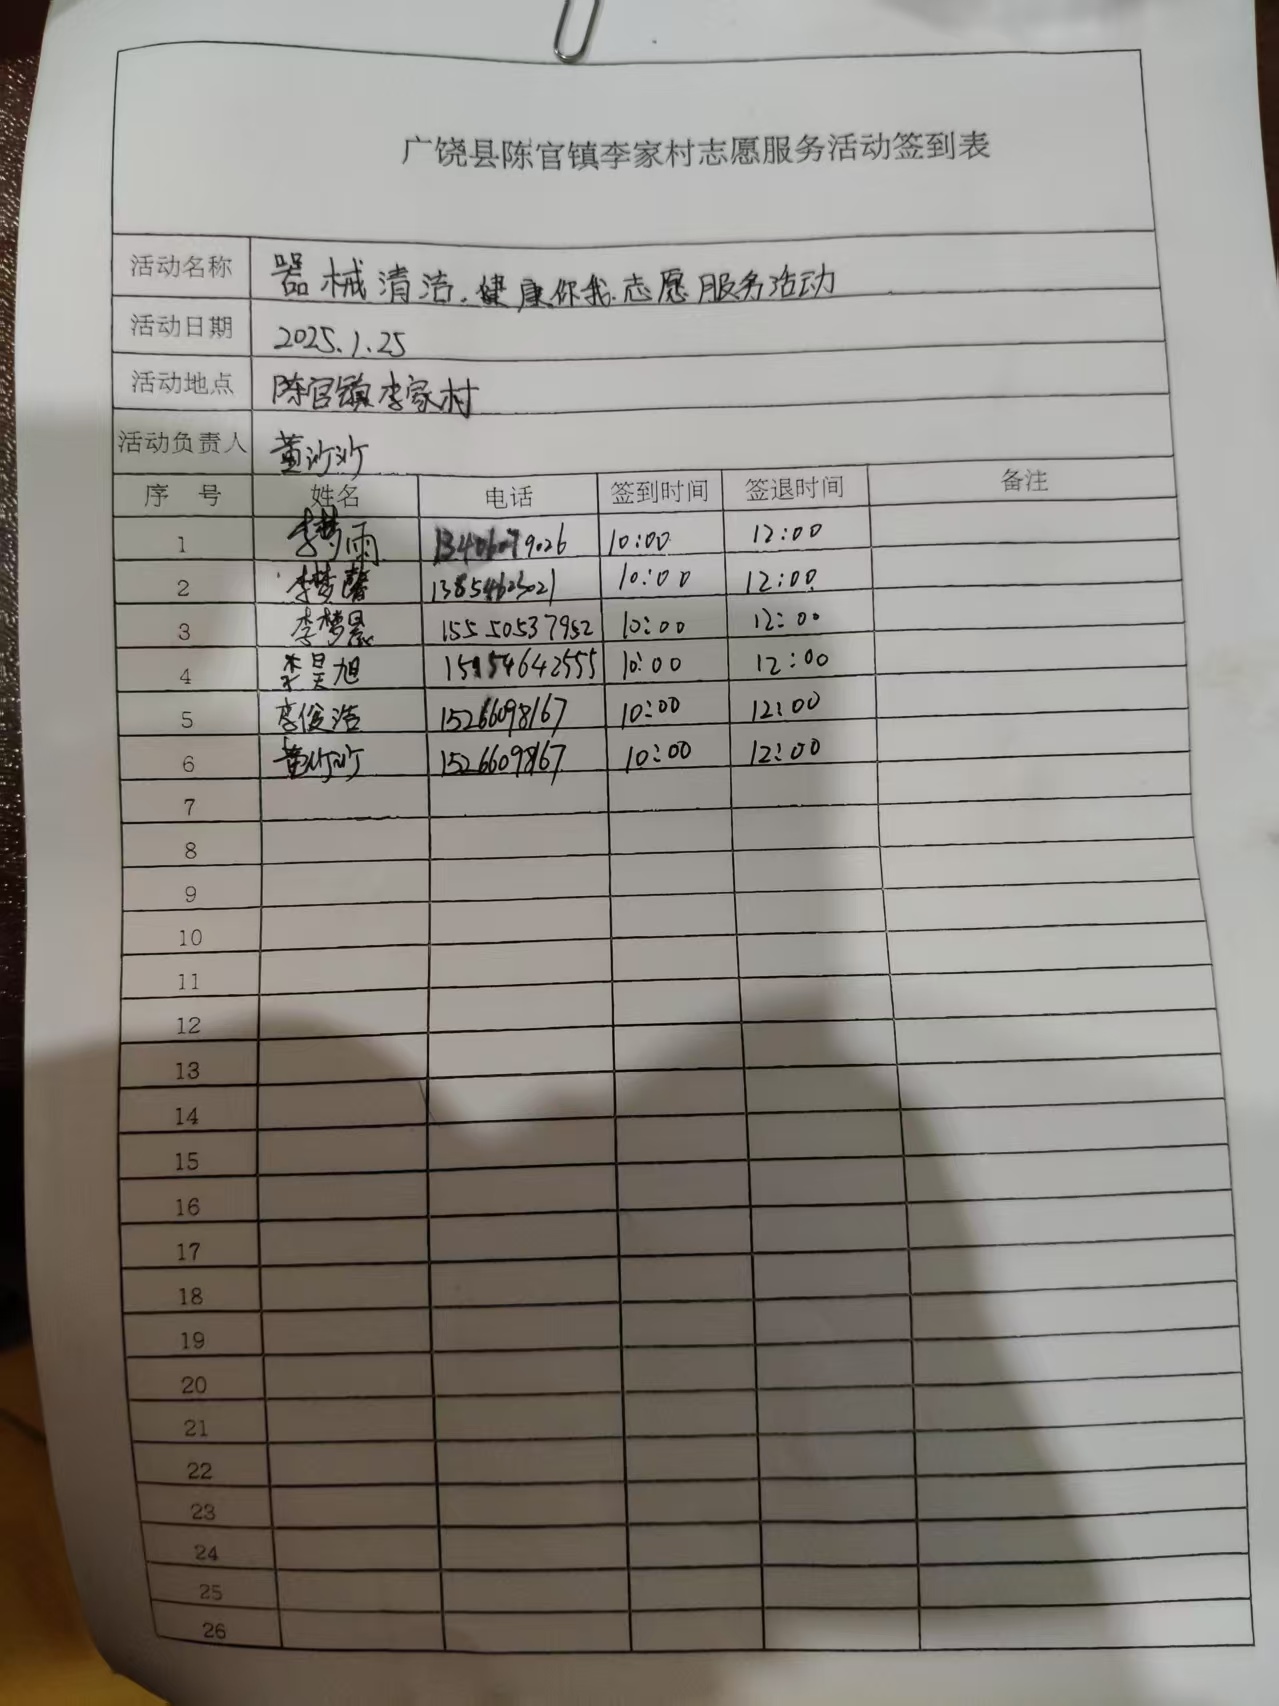 广饶县陈官镇李家村志愿服务活动签到表
活动名称 器械清洁.健康你我.志愿服务活动
活动日期 2025.1.25
活动地点 陈官镇李家村
活动负责人 黄沙沙
序 号 姓名 电话 签到时间 签退时间 备注
1 李梦雨 13406079026 10:00 12:00
2 李梦馨 13854623021 10:00 12:00
3 李梦晨 15550537952 10:00 12:00
4 李昊旭 15954642555 10:00 12:00
5 李俊浩 15266098167 10:00 12:00
6 黄沙沙 15266098167 10:00 12:00
7
8
9
10
11
12
13
14
15
16
17
18
19
20
21
22
23
24
25
26